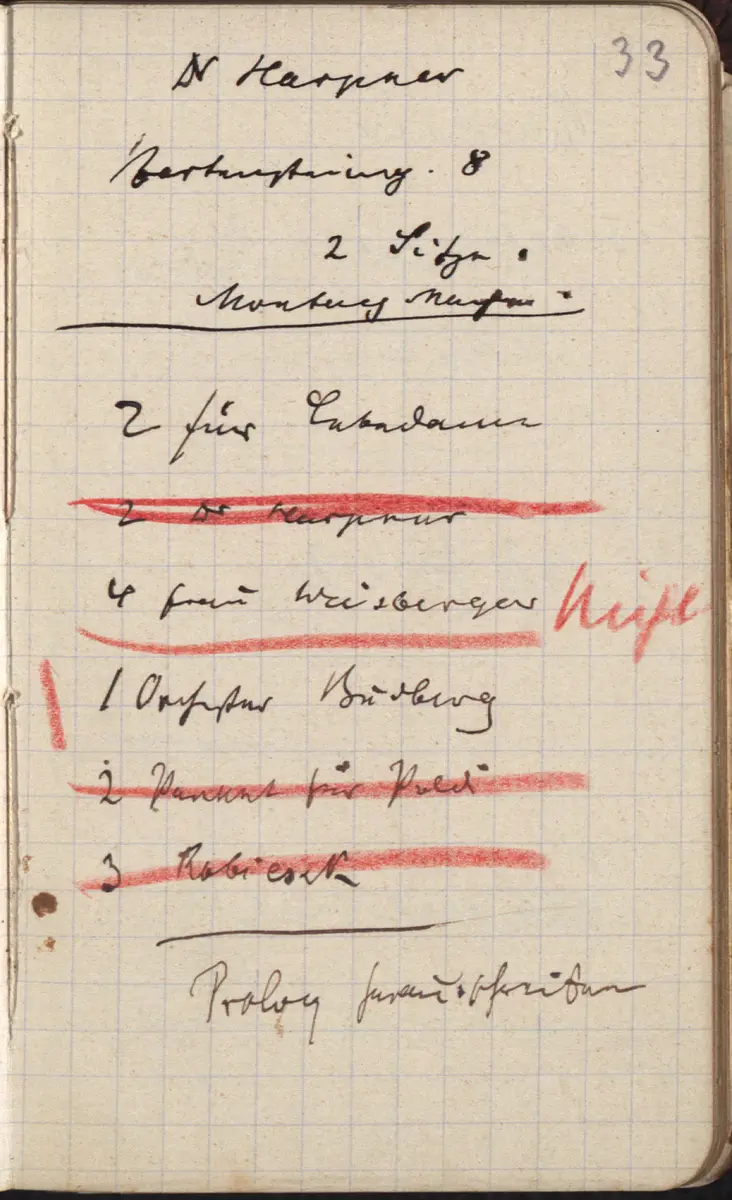 33
Dr Harpner
2 Sitze.
Montag
2 für
2 Dr Harpner
4 Frau Weisberger
1 Orchester Budberg
2 Parkett für Poldi
3 Robicsek
Prolog herausschreiben